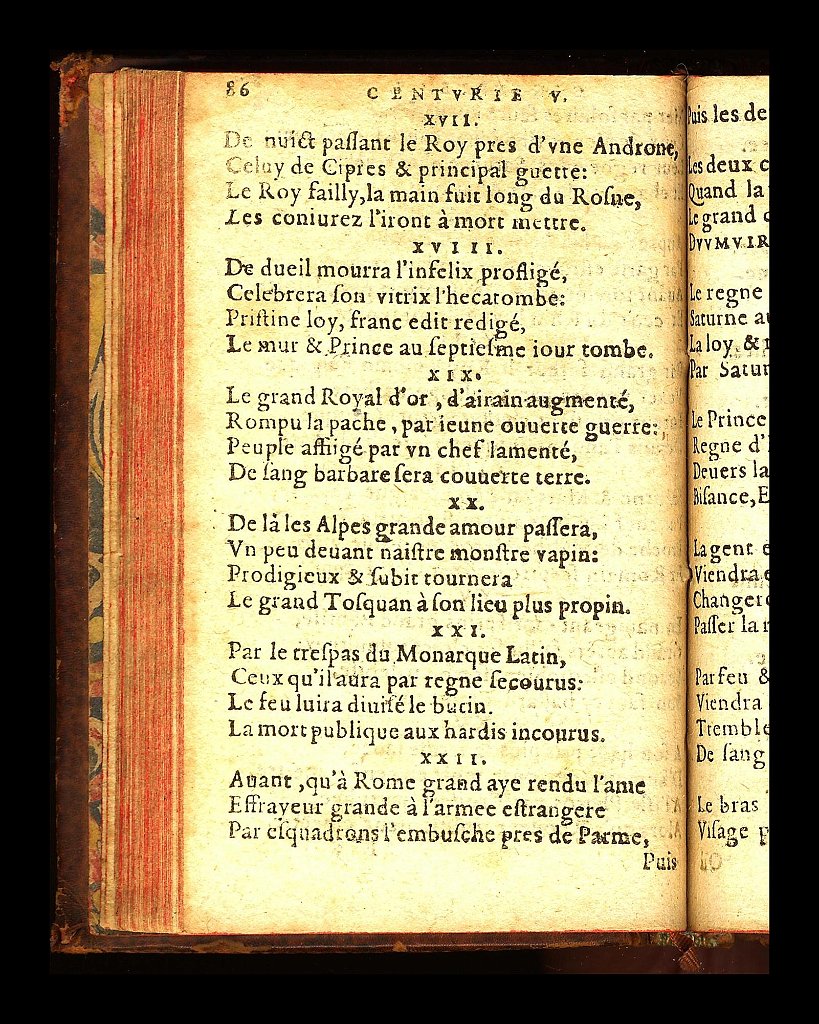 86 CENTVRIE V.
XVII.
De nuict paſſant le Roy pres d'vne Androne,
Celuy de Cipres & principal guette:
Le Roy failly,la main fuit long du Roſne,
Les coniurez l'iront à mort mettre.
XVIII.
De dueil mourra l'infelix profligé,
Celebrera ſon vitrix l'hecatombe:
Priſtine loy, franc edit redigé,
Le mur & Prince au ſeptieſme iour tombe.
XIX.
Le grand Royal d'or , d'airain augmenté,
Rompu la pache , par ieune ouuerte guerre:
Peuple affligé par vn chef lamenté,
De ſang barbare ſera couuerte terre.
XX.
De là les Alpes grande amour paſſera,
Vn peu deuant naiſtre monſtre vapin:
Prodigieux & ſubit tournera
Le grand Toſquan à ſon lieu plus propin.
XXI.
Par le treſpas du Monarque Latin,
Ceux qu'il aura par regne ſecourus:
Le feu luira diuiſé le butin.
La mort publique aux hardis incourus.
XXII.
Auant ,qu'à Rome grand aye rendu l'ame
Effrayeur grande à l'armee eſtrangere
Par eſquadrons l'embuſche pres de Parme,
Puis
Puis les de
Les deux c
Quand la
Le grand
DVVMVIR
Le regne
Saturne au
La loy, &
Par Satur
Le Prince
Regne d'
Deuers la
Biſance, E
La gent
Viendra
Changer
Paſſer la
Par feu &
Viendra
Tremble
De ſang
Le bras
Viſage